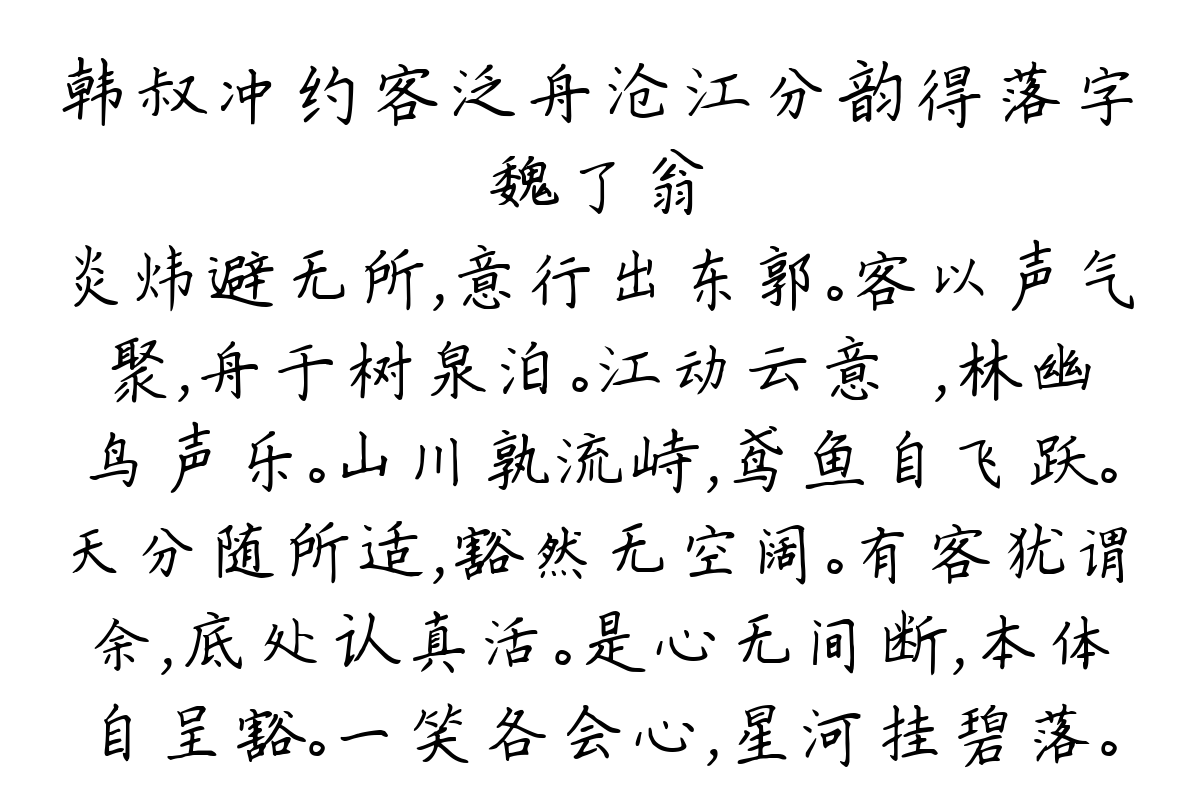 韩叔冲约客泛舟沧江分韵得落字
魏了翁
炎炜避无所,意行出东郭。客以声气
聚,舟于树泉泊。江动云意 ,林幽
鸟声乐。山川孰流峙,鸢鱼自飞跃。
天分随所适,豁然无空阔。有客犹谓
余,底处认真活。是心无间断,本体
自呈豁。一笑各会心,星河挂碧落。